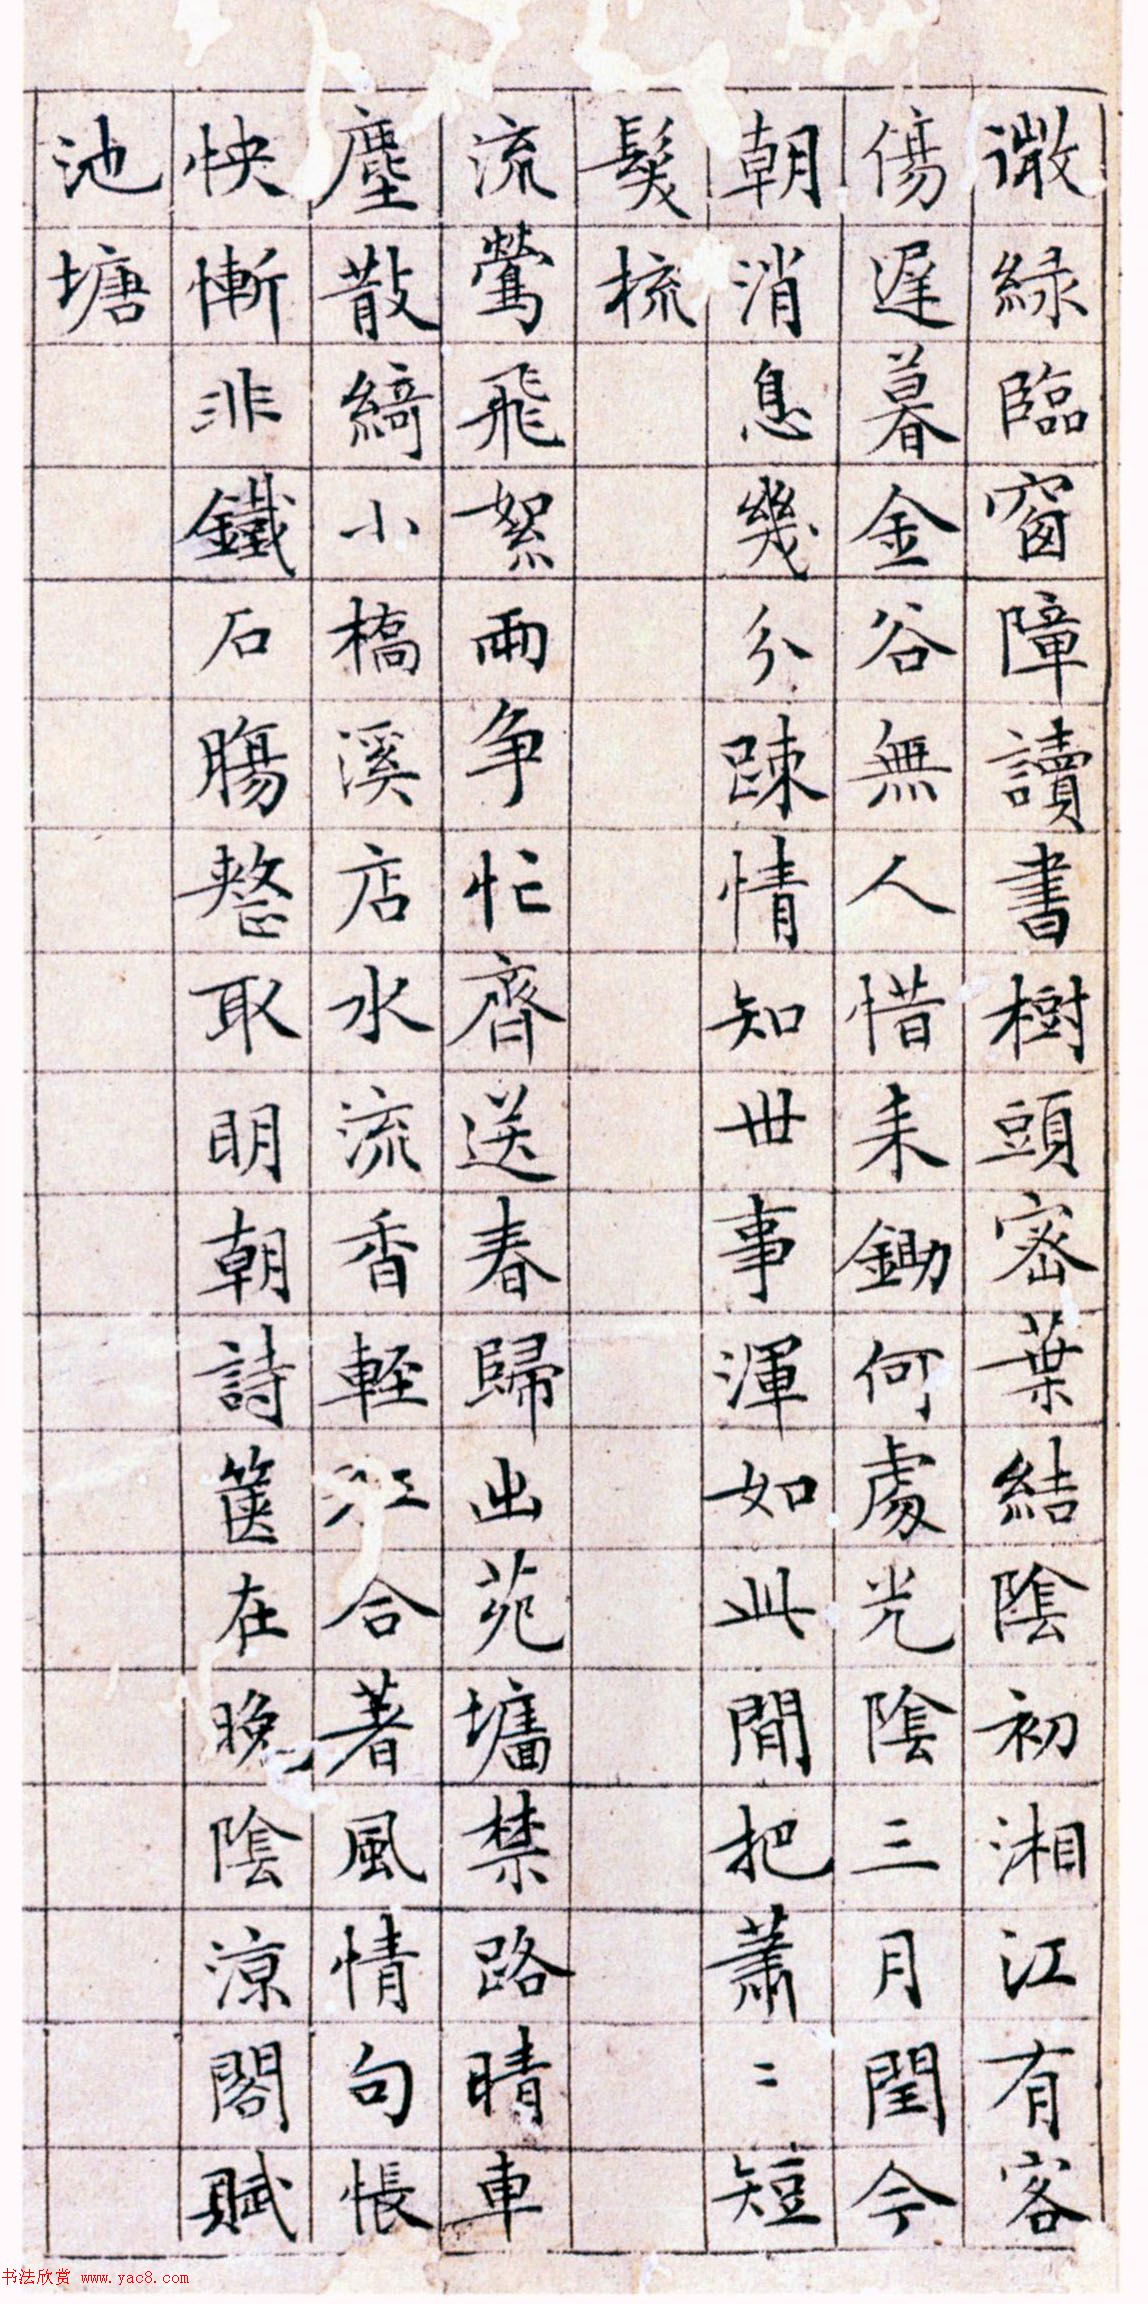 澂緑臨窗障讀書樹頭密葉結陰初湘江有客
傷遲暮金谷無人惜耒鋤何處光陰三月閏今
朝消息幾分踈情知世事渾如此閒把蕭〻短
髮梳
流鶯飛絮兩争忙齊送春歸出苑墻禁路晴車
塵散綺小橋溪店水流香輕紅合著風情句悵
怏慚非鐵石腸整取明朝詩篋在晚陰涼閣賦
池塘
书法欣赏 www.yac8.com